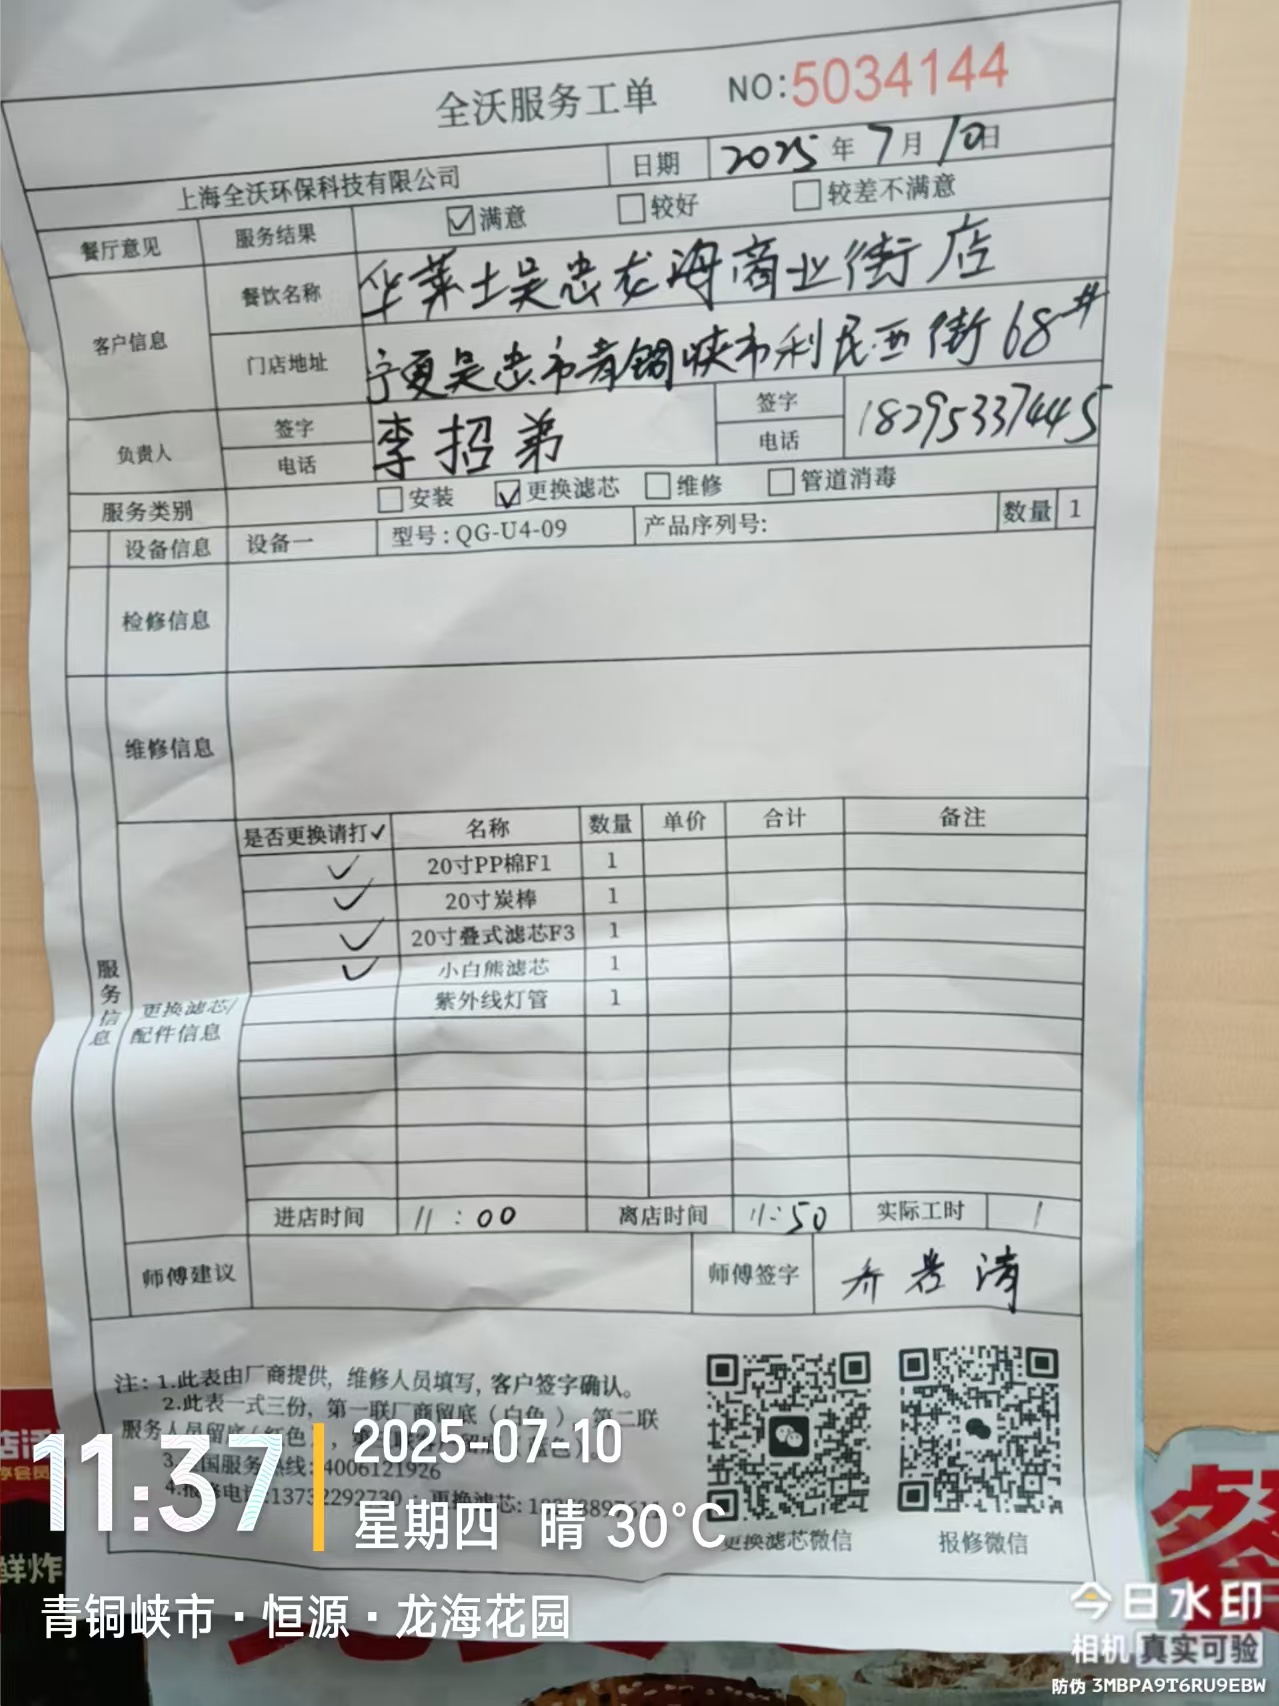 全沃服务工单 NO:5034144
上海全沃环保科技有限公司 日期 2025年7月10日
餐厅意见 服务结果 ☑满意 □较好 □较差不满意
客户信息 餐饮名称 华莱士吴忠龙海商业街店
门店地址 宁夏吴忠市青铜峡市利民西街68#
负责人 签字 电话 李招弟 签字 电话 18295337445
服务类别 □安装 ☑更换滤芯 □维修 □管道消毒
设备信息 设备一 型号:QG-U4-09 产品序列号: 数量 1
检修信息
维修信息
服务信息
更换滤芯/配件信息
是否更换请打✓ 名称 数量 单价 合计 备注
✓ 20寸PP棉F1 1
✓ 20寸炭棒 1
✓ 20寸叠式滤芯F3 1
✓ 小白熊滤芯 1
紫外线灯管 1
进店时间 11:00 离店时间 11:50 实际工时 1
师傅建议 师傅签字
注: 1.此表由厂商提供, 维修人员填写, 客户签字确认。
2.此表一式三份, 第一联厂商留底(白色), 第二联
服务人员留底
国服务热线:4006121926
4.报修电话:13732292730 更换滤芯:
更换滤芯微信 报修微信
11:37
2025-07-10
星期四 晴 30°C
青铜峡市·恒源·龙海花园
今日水印
相机 真实可验
防伪 3MBPA9T6RU9EBW
鲜炸
餐